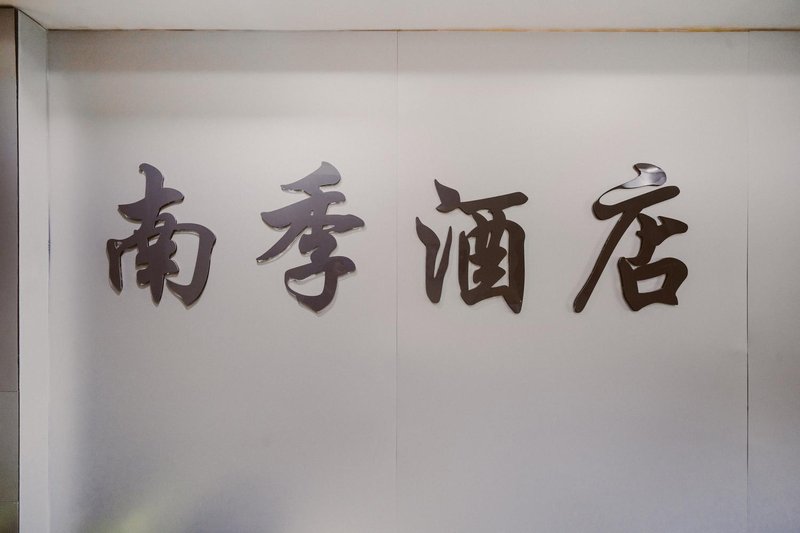 南季酒店